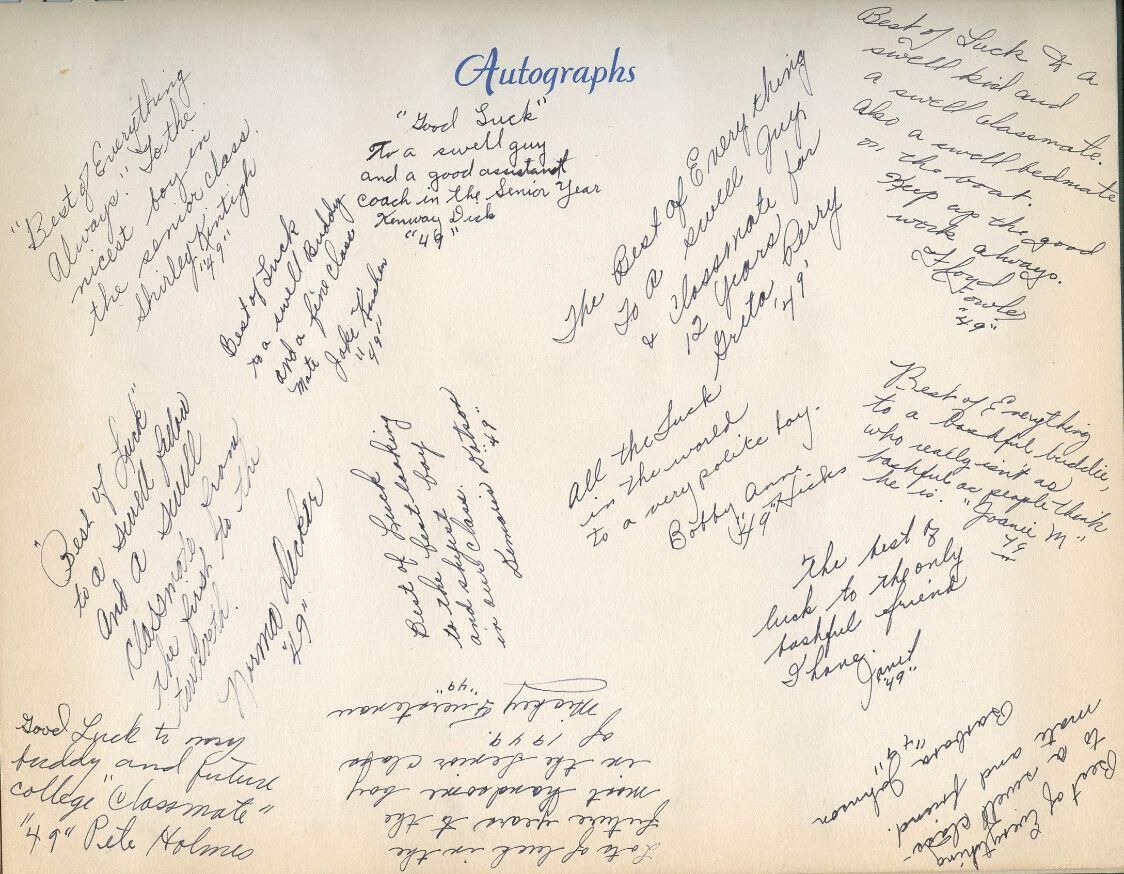 Autographs
"Best of Everything
Always." To the
nicest boy in
the senior class.
Shirley Kintigh
"49"
"Good Luck"
To a swell guy
and a good assistant
coach in the Senior Year
Kenway Dick
"49"
Best of Luck
to a swell Buddy
and a fine Class
mate
Jake
"49"
The Best of Everything
To A Swell Guy
& Classmate for
12 years,
Greta Perry
'49'
Best of Luck to a
swell kid and
a swell classmate.
Also a swell bedmate
on the boat.
Keep up the good
work always.
Floyd
Fowler
"49"
"Best of Luck"
to a swell fellow
and a swell
classmate from
the first to the
twelveth.
Norma Decker
"49"
Best of Luck
to the best looking
and shyest boy
in our class.
Lemoria Dotson
"49"
All the Luck
in the world
to a very polite boy.
Bobby Anne Hicks
"49"
Best of Everything
to a bashful buddie,
who really isn't as
bashful as people think
he is. "Joanie M."
49
The best of
luck to the only
bashful friend
I have.
Janet
"49"
Good Luck to my
buddy and future
college "Classmate"
"49" Pete Holmes
Lots of luck in the
future years to the
most handsome boy
in the Senior Class
of 1949.
Mickey
"49"
Best of Everything
to a swell class-
mate and friend.
Barbara Johnson
"49"